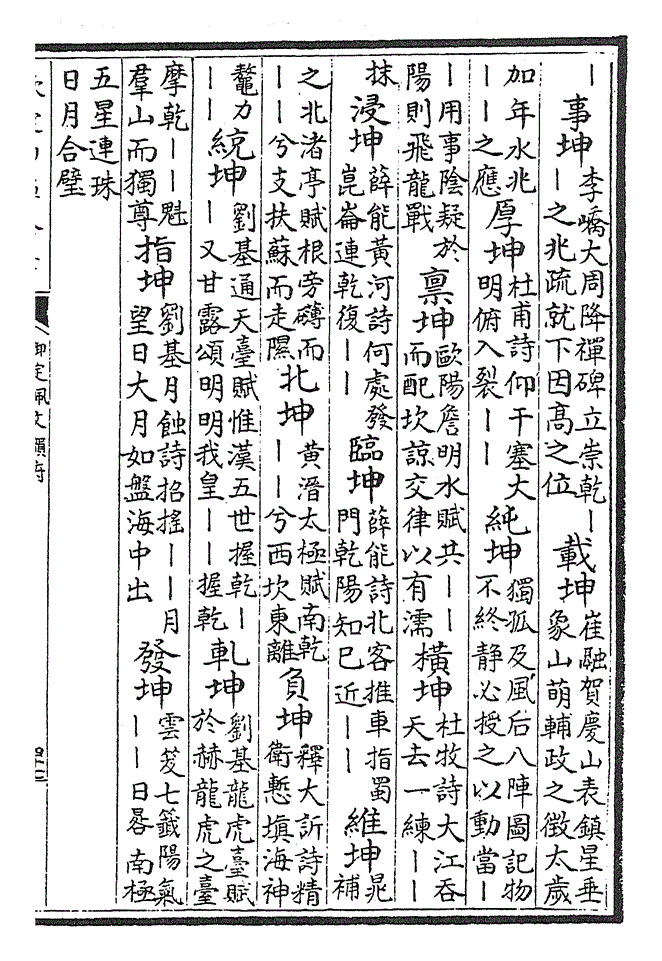 ｜事坤李嶠大周降禪碑立崇乾｜｜之兆疏就下因高之位載坤崔融賀慶山表鎮星垂象山萌輔政之徵太歲
加年水兆｜｜之應厚坤杜甫詩仰干塞大明俯入裂｜｜純坤獨孤及風后八陣圖記物不終静必授之以動當｜
｜用事陰疑於陽則飛龍戰禀坤歐陽詹明水賦共｜｜而配坎諒交律以有濡橫坤杜牧詩大江吞天去一練｜｜
抹浸坤薛能黄河詩何處發崑崙連乾復｜｜臨坤薛能詩北客推車指蜀門乾陽知已近｜｜維坤晁補
之北渚亭賦根旁礴而｜｜兮支扶蘇而走隰北坤黄溍太極賦南乾｜｜兮西坎東離負坤釋大訢詩精衛慙填海神
鼇力｜｜統坤劉基通天臺賦惟漢五世握乾｜｜又甘露頌明明我皇｜｜握乾軋坤劉基龍虎臺賦於赫龍虎之臺
摩乾｜｜魁羣山而獨尊指坤劉基月蝕詩招搖｜｜月望日大月如盤海中出發坤雲笈七籤陽氣｜｜日晷南極
五星連珠日月合璧
御定佩文韻府